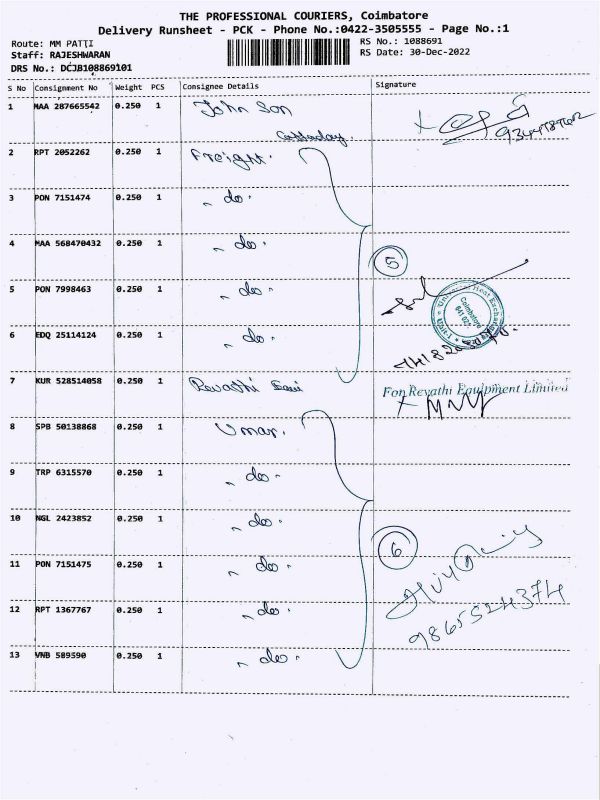 THE PROFESSIONAL COURIERS, Coimbatore
Delivery Runsheet - PCK - Phone No.:0422-3505555 - Page No.:1
Route: MM PATTI
RS No.: 1088691
Staff: RAJESHWARAN
RS Date: 30-Dec-2022
DRS No.: DCJB108869101
S No Consignment No Weight PCS Consignee Details Signature
1 MAA 287665542 0.250 1 John Son
2 RPT 2052262 0.250 1 Freight.
3 PON 7151474 0.250 1 " do "
4 MAA 568470432 0.250 1 " do "
5
5 PON 7998463 0.250 1 " do "
Coimbatore
6 EDQ 25114124 0.250 1 " do "
7 KUR 528514058 0.250 1 Revathi
For Revathi Equipment Limited
8 SPB 50138868 0.250 1 Umar.
9 TRP 6315570 0.250 1 " do "
10 NGL 2423852 0.250 1 " do "
6
11 PON 7151475 0.250 1 " do "
12 RPT 1367767 0.250 1 " do "
9865524374
13 VNB 589590 0.250 1 " do "